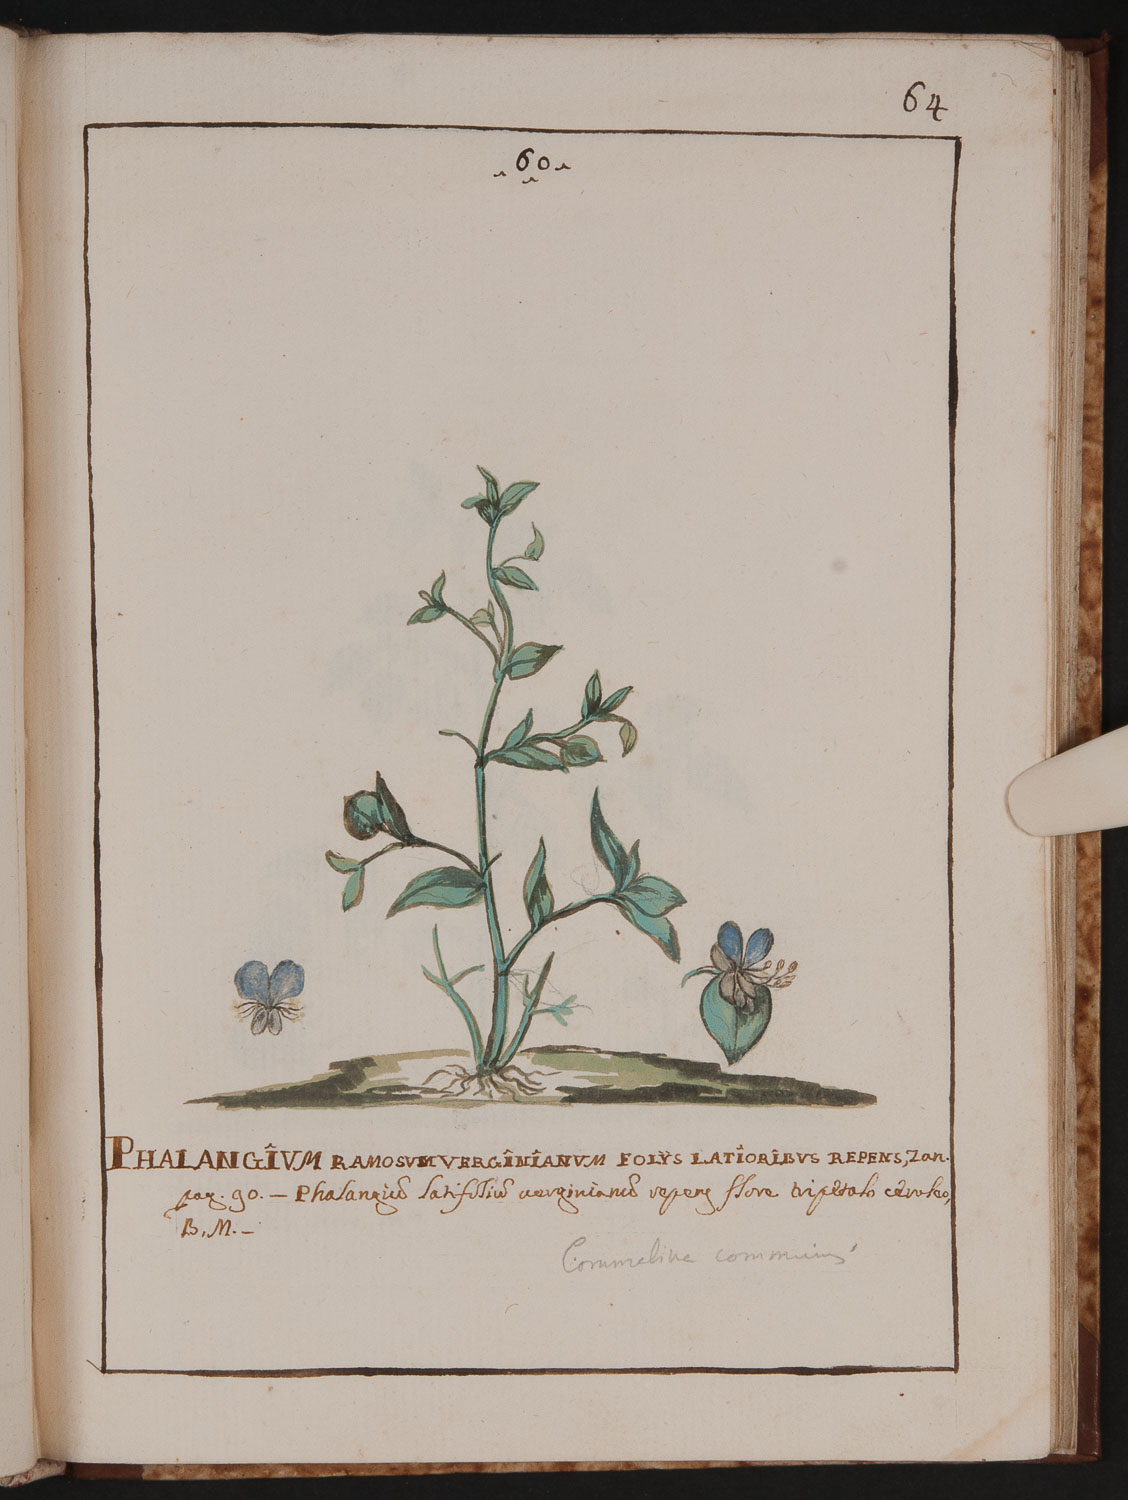 64
60
PHALANGÎVM RAMOSVM VERGÎNÎANVM FOLYS LATIORÎBVS REPENS, Zan.
pag. 90. — Phalangiũ latifoliũ verginianũ repens flore tripetalo cæruleo,
B. M. —
Commelina communis